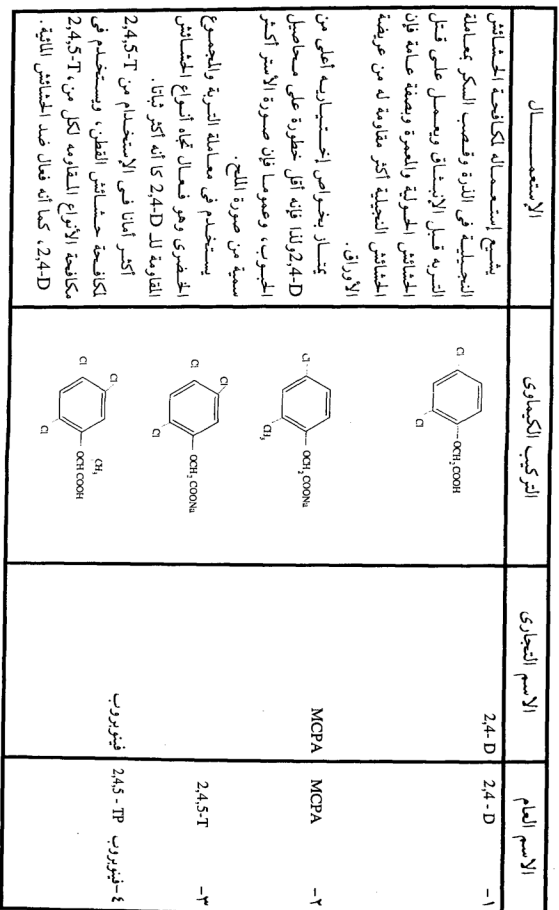 الاسم العام
الاسم التجارى
التركيب الكيماوى
الإستعمـــــال
١-
2,4 - D
2,4- D
Cl
Cl
OCH₂COOH
يشيع إستعماله لمكافحة الحشائش
النجيلية فى الذرة وقصب السكر بمعاملة
التربه قبل الإنبثاق ويعمل على قتل
الحشائش الحولية والمعمرة وبصفة عامة فإن
الحشائش النجيلية أكثر مقاومة له من عريضة
الأوراق.
٢-
MCPA
MCPA
Cl
CH₃
OCH₂COONa
يمتاز بخواص إختياريه أعلى من
2,4-D ولذا فإنه أقل خطورة على محاصيل
الحبوب، وعموما فإن صورة الأستر أكثر
سمية من صورة الملح.
٣-
2,4,5-T
Cl
Cl
Cl
OCH₂COONa
يستخدم فى معاملة التربة والمجموع
الخضرى وهو فعال تجاه أنواع الحشائش
المقاومة للـ 2,4-D كا أنه أكثر ثباتا.
٤-فينوبروب
2,4,5 - TP
فينوبروب
Cl
Cl
Cl
CH₃
OCH COOH
أكثر أمانا فى الإستخدام من 2,4,5-T
لمكافحة حشائش القطن، ويستخدم فى
مكافحة الأنواع المقاومه لكل من 2,4,5-T،
2,4-D، كما أنه فعال ضد الحشائش المائية.